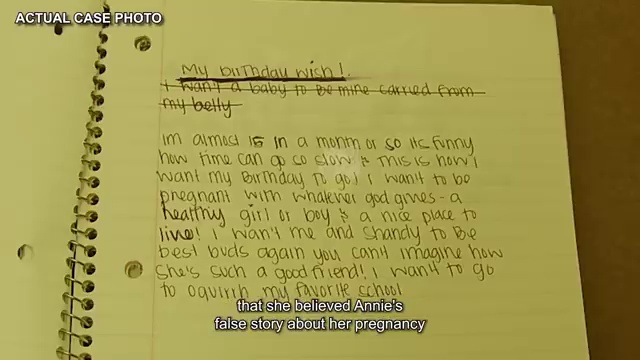 ACTUAL CASE PHOTO
My birthday wish!
I want a baby to be mine carried from
my belly
Im almost 15 in a month or so its funny
how time can go so slow & this is how I
want my Birthday to go! I want to be
pregnant with whatever god gives - a
healthy girl or boy & a nice place to
live! I want me and Shandy to Be
best buds again you can't imagine how
she's such a good friend! I want to go
to Oquirrh my favorite school
that she believed Annie's
false story about her pregnancy